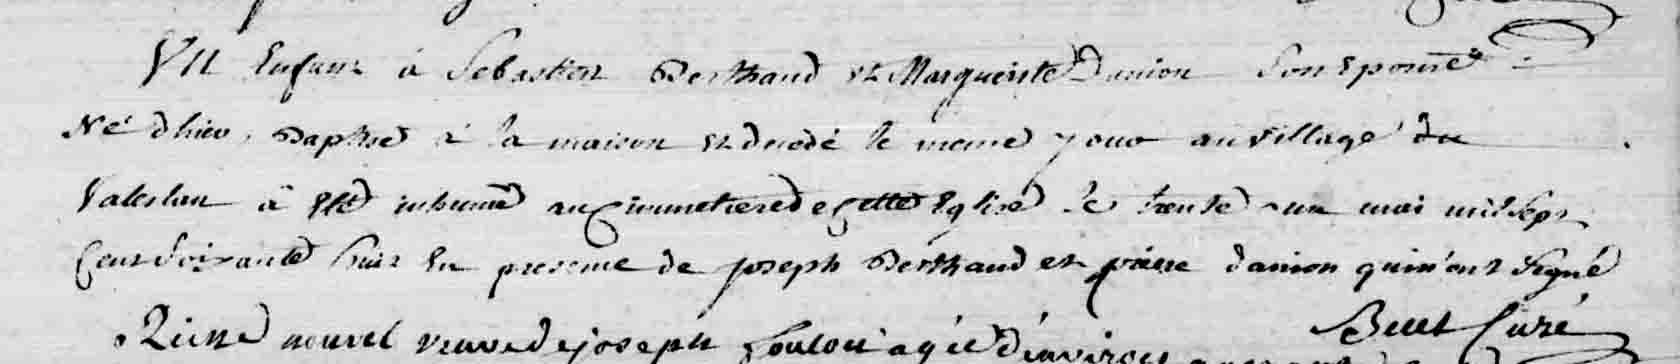 Un Enfant à Sebastien Berthaud et Marguerite Danion Son Epouse
Né d'hier, Baptisé à la maison et decedé le meme jour au village du
Valeslan à Eté inhumé au Cimmetiere de Cette Eglise le trente un mai mil sept
Cent Soixante huit En presence de joseph Berthaud et pierre danion qui n'ont Signé
Buet Curé
nouvel veuve de joseph agée d'environ